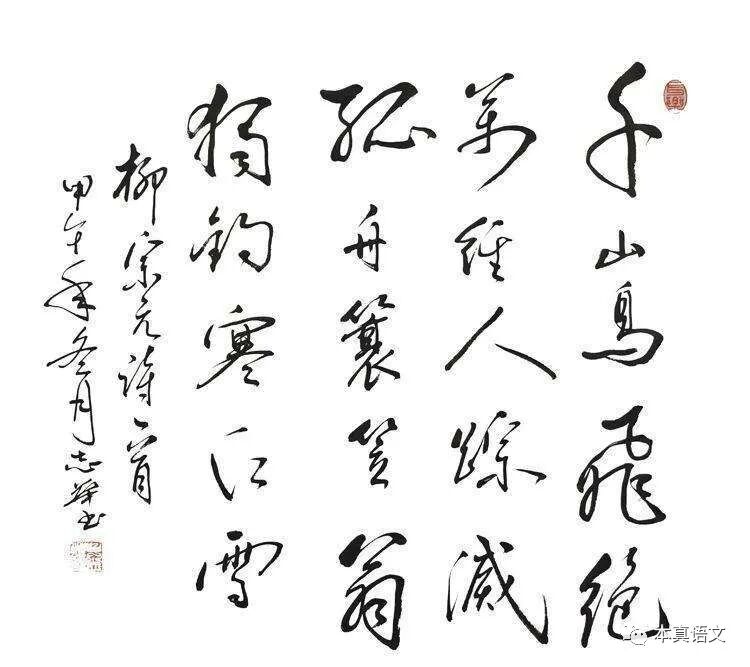 千山鳥飛絕
萬徑人踪滅
孤舟簑笠翁
獨釣寒江雪
柳宗元詩一首
甲午年冬月志書
本真语文